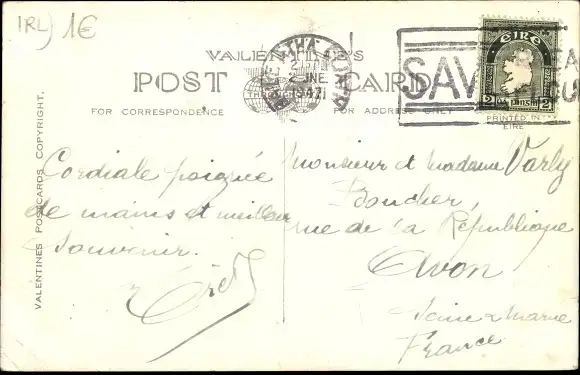 IRL) 1€
VALENTINE'S
POST CARD
FOR CORRESPONDENCE
FOR ADDRESS ONLY
PRINTED IN
EIRE
éire
2 pingin 2
SAV
VALENTINES POSTCARDS COPYRIGHT.
Cordiale poignée
de mains et meilleur
souvenir.
Monsieur et Madame Varly
Boucher,
rue de la République
Avon
Seine & Marne
France